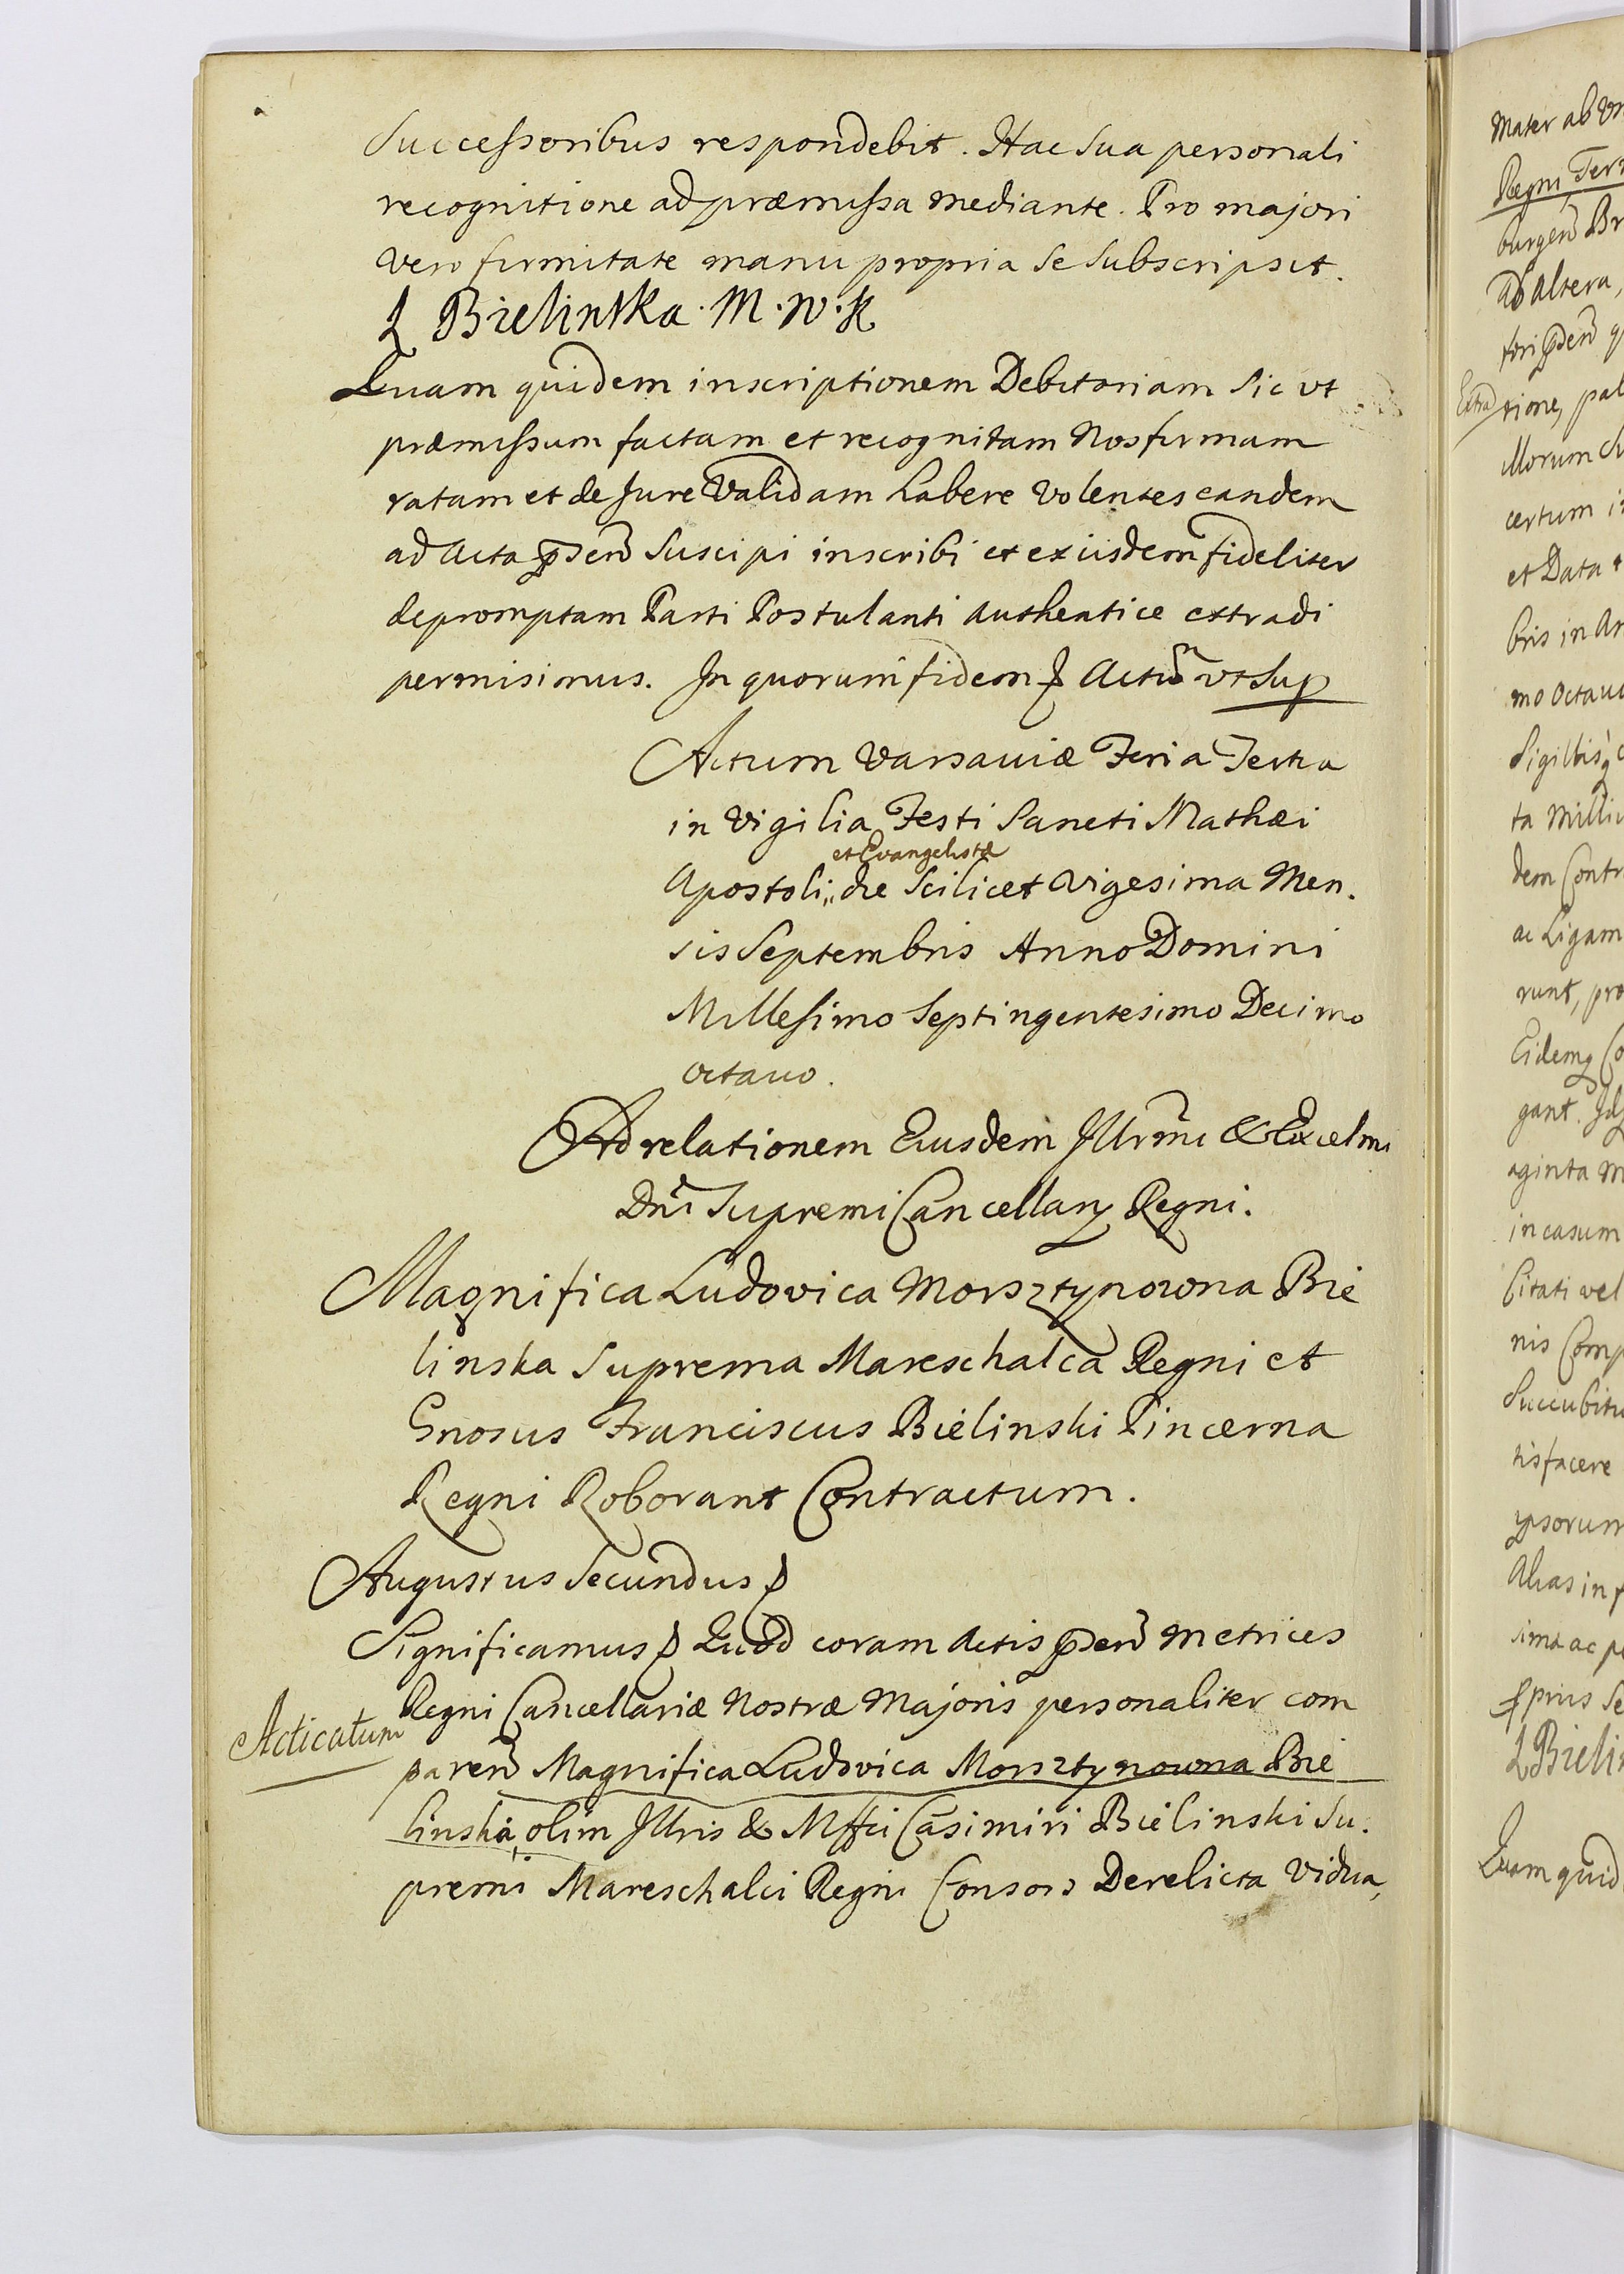 Successoribus respondebit. Hac Sua personali
recognitione ad præmissa mediante. Pro majori
vero firmitate manu propria Se Subscripsit.
L Bielinska. M. W. K
Quam quidem inscriptionem Debitoriam Sic vt
præmissum factam et recognitam Nos firmam
ratam et de Jure Validam habere Volentes eandem
ad Acta pñsen Suscipi inscribi et ex iisdem fideliter
depromptam Parti Postulanti Authentice extradi
permisimus. In quorum fidem & Actũ vt Sup
Actum Varsaviæ Feria Tertia
in Vigilia Festi Sancti Mathæi
et Evangelistæ
Apostoli,, die Scilicet Vigesima Men.
sis Septembris Anno Domini
Millesimo Septingentesimo Decimo
Octavo.
Ad relationem Eiusdem Illrmi & Excelmi
Dni Supremi Cancellarÿ Regni.
Magnifica Ludovica Morsztynowna Bie
linska Suprema Mareschalca Regni et
Gnosus Franciscus Bielinski Pincerna
Regni Roborant Contractum.
Augustus Secundus &
Significamus & Quod coram Actis pñsen Metrices
Regni Cancellariæ Nostræ Majoris personaliter com
Acticatum
paren Magnifica Ludovica Morsztynowna Bie
linska, olim Illris & Mffci Casimiri Bielinski Su.
premi Mareschalci Regni Consors Derelicta Vidua,
Mater ab
Regni, Ter
burgen Br
ab altera,
Extrad
tione, pal
illorum
certum
et Data
bris in
mo Octavo
Sigillisq
ta Milli
dem Contr
ac Ligam
runt, præ
Eidemq Co
gant.
aginta
in casum
Citati vel
nis Comp
Succubitu
tisfacere
ipsorum
Alias in
sima ac
prius Se
L Bielin
Quam quid